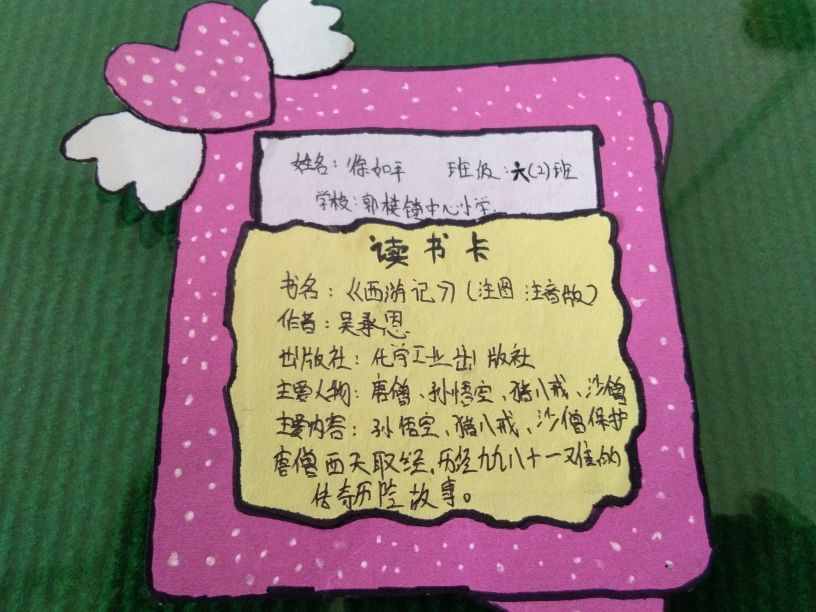 姓名：徐如平 班级：六(2)班
学校：郭楼镇中心小学
读书卡
书名：《西游记》（注图 注音版）
作者：吴承恩
出版社：化学工业出版社
主要人物：唐僧、孙悟空、猪八戒、沙僧
主要内容：孙悟空、猪八戒、沙僧保护
唐僧西天取经，历经九九八十一难的
传奇历险故事。